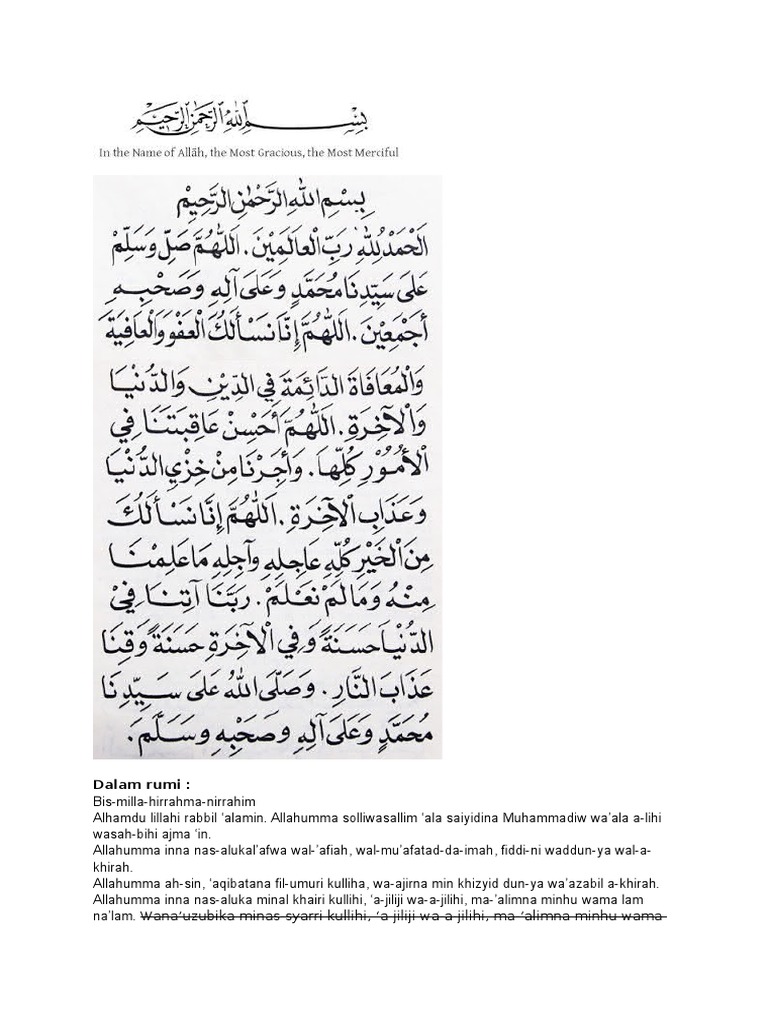 بِسْمِ اللهِ الرَّحْمٰنِ الرَّحِيْمِ
In the Name of Allāh, the Most Gracious, the Most Merciful
بِسْمِ اللهِ الرَّحْمٰنِ الرَّحِيْمِ
اَلْحَمْدُ لِلّٰهِ رَبِّ الْعَالَمِيْنَ. اَللّٰهُمَّ صَلِّ وَسَلِّمْ
عَلَى سَيِّدِنَا مُحَمَّدٍ وَعَلَى آلِهِ وَصَحْبِهِ
أَجْمَعِيْنَ. اَللّٰهُمَّ إِنَّا نَسْأَلُكَ الْعَفْوَ وَالْعَافِيَةَ
وَالْمُعَافَاةَ الدَّائِمَةَ فِي الدِّيْنِ وَالدُّنْيَا
وَالْآخِرَةِ. اَللّٰهُمَّ أَحْسِنْ عَاقِبَتَنَا فِي
الْأُمُوْرِ كُلِّهَا. وَأَجِرْنَا مِنْ خِزْيِ الدُّنْيَا
وَعَذَابِ الْآخِرَةِ. اَللّٰهُمَّ إِنَّا نَسْأَلُكَ
مِنَ الْخَيْرِ كُلِّهِ عَاجِلِهِ وَآجِلِهِ مَا عَلِمْنَا
مِنْهُ وَمَا لَمْ نَعْلَمْ. رَبَّنَا آتِنَا فِيْ
الدُّنْيَا حَسَنَةً وَفِي الْآخِرَةِ حَسَنَةً وَقِنَا
عَذَابَ النَّارِ. وَصَلَّى اللهُ عَلَى سَيِّدِنَا
مُحَمَّدٍ وَعَلَى آلِهِ وَصَحْبِهِ وَسَلَّمَ.
Dalam rumi :
Bis-milla-hirrahma-nirrahim
Alhamdu lillahi rabbil ‘alamin. Allahumma solliwasallim ‘ala saiyidina Muhammadiw wa’ala a-lihi
wasah-bihi ajma ‘in.
Allahumma inna nas-alukal’afwa wal-’afiah, wal-mu’afatad-da-imah, fiddi-ni waddun-ya wal-a-
khirah.
Allahumma ah-sin, ‘aqibatana fil-umuri kulliha, wa-ajirna min khizyid dun-ya wa’azabil a-khirah.
Allahumma inna nas-aluka minal khairi kullihi, ‘a-jiliji wa-a-jilihi, ma-’alimna minhu wama lam
na’lam. Wana’uzubika minas syarri kullihi, ‘a-jiliji wa-a-jilihi, ma-’alimna minhu wama